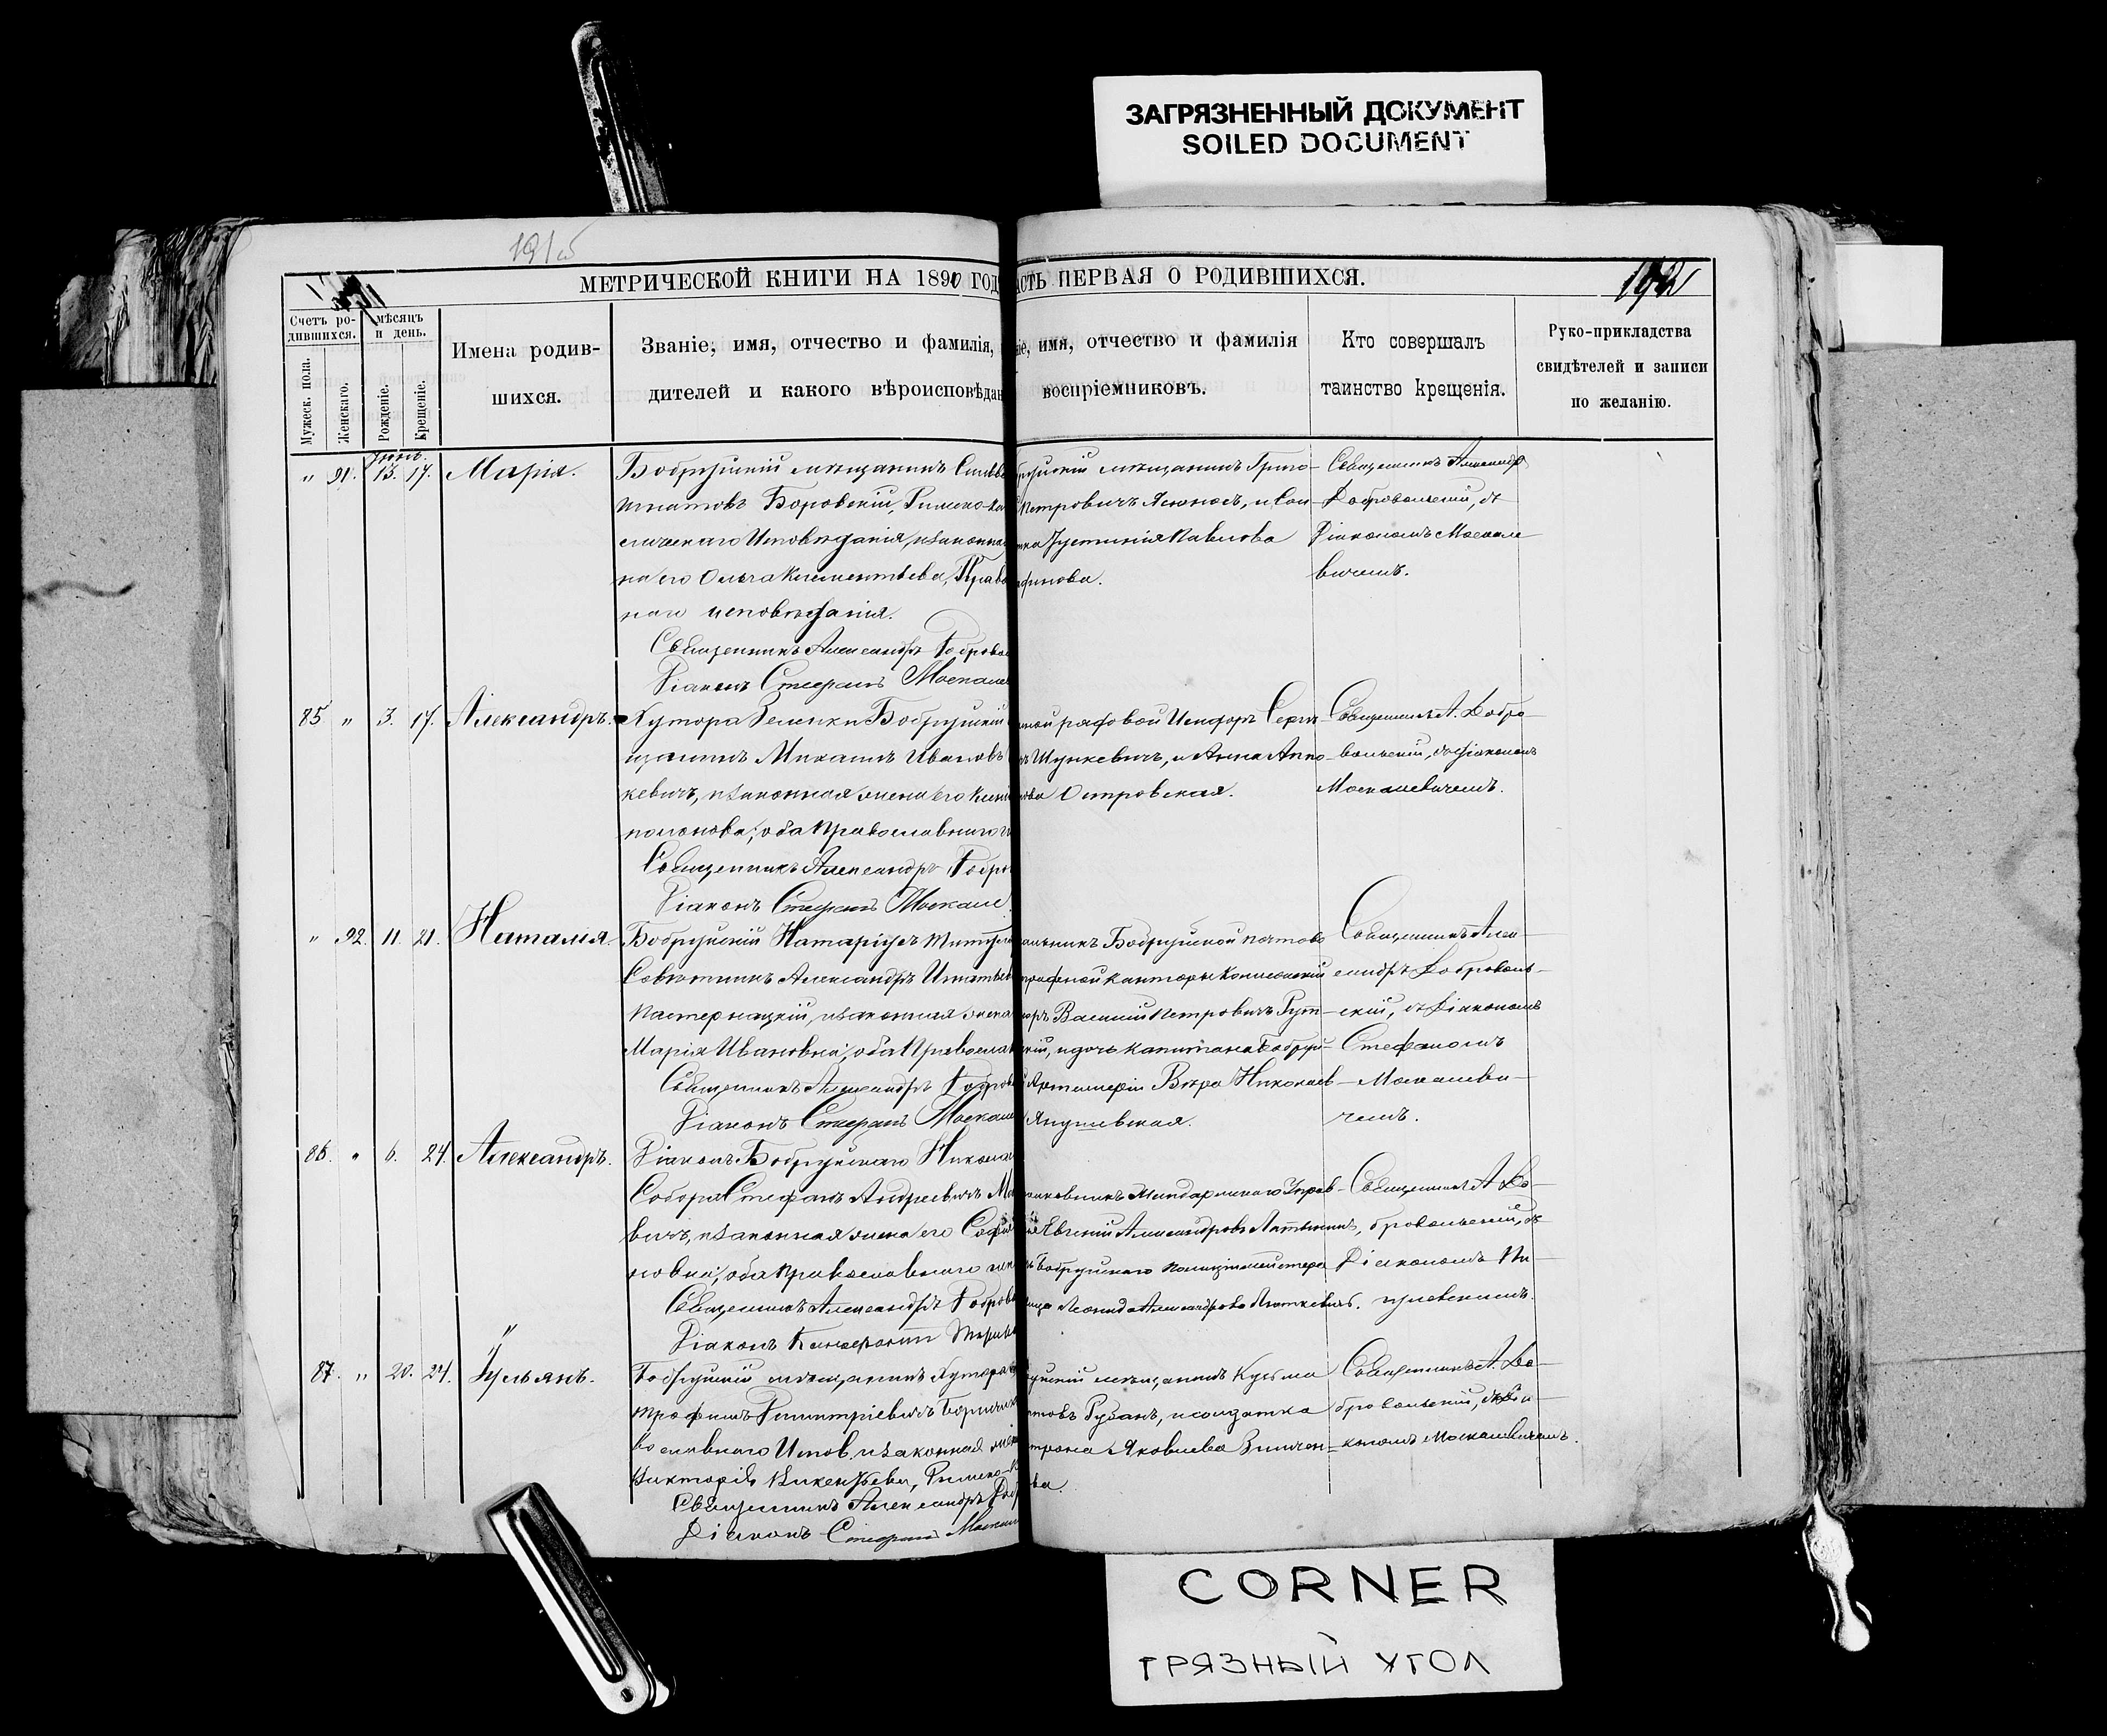 ЗАГРЯЗНЕННЫЙ ДОКУМЕНТ
SOILED DOCUMENT
МЕТРИЧЕСКОЙ КНИГИ НА 1890 ГОД
АСТЬ ПЕРВАЯ О РОДИВШИХСЯ.
192
Счетъ ро-
дившихся.
Мужеск. пола.
Женскаго.
мѣсяцъ
и день.
Рожденіе.
Крещеніе.
Имена родив-
шихся.
Званіе, имя, отчество и фамилія,
дителей и какого вѣроисповѣдан
іе, имя, отчество и фамилія
воспріемниковъ.
Кто совершалъ
таинство крещенія.
Руко-прикладства
свидѣтелей и записи
по желанію.
" 91. 13. 17. Марія.
Бобруйскій мѣщанинъ
Игнатовъ Боровскій, Римско-ка
лическаго Исповѣданія, и законная
на его Ольга Климентьева, Право
наго исповѣданія.
Священникъ Александръ Доброво
Діаконъ Стефанъ Москале
бруйскій мѣщанинъ Григо-
Петровичъ
тка Іустинія Павлова
финова.
Священникъ Александр
Добровольскій, съ
Діакономъ Москале
вичемъ.
85 " 3. 17. Александръ.
Хутора Бобруйскій
щанинъ Михаилъ Ивановъ
кевичъ, и законная жена его
полонова, оба Православнаго и
Священникъ Александръ Добро
Діаконъ Стефанъ Москале
рядовой Никифоръ Серге
Шункевичъ, и Анна Апо-
нова Островская.
Священникъ А. Добро-
вольскій, съ Діакономъ
Москалевичемъ.
" 92. 11. 21. Наталія.
Бобруйскій Натаріусъ Титуля
Совѣтникъ Александръ Игнатьев
Пастернацкій, и законная жена
Марія Ивановна, оба Православ
Священникъ Александръ Добров
Діаконъ Стефанъ Москале
альникъ Бобруйской почтово
графной канторы Коллежскій
соръ Василій Петровичъ Рут-
скій, и дочь Капитана Бобруй-
Артиллеріи Вѣра Николаев
Янушевская.
Священникъ Алек-
сандръ Доброволь-
скій, съ Діакономъ
Стефаномъ
Москалеви-
чемъ.
86. " 6. 24. Александръ.
Діаконъ Бобруйскаго Никола
Собора Стефанъ Андреевичъ Мо
вичъ, и законная жена его Софія
новна, оба Православнаго исп
Священникъ Александръ Доброво
Діаконъ
олковникъ Жандармскаго Управ-
Евгеній Александровъ
Бобруйскаго Полиціймейстера
Леонида Александрова
Священникъ А. До-
бровольскій, съ
Діакономъ
87. " 20. 24. Іульянъ.
Бобруйскій мѣщанинъ Хутора
Трофимъ Димитріевичъ
вославнаго Испов. и законная жен
Викторія Викентьева, Римско-К
Священникъ Александръ Доб
Діаконъ Стефанъ Москал
уйскій мѣщанинъ Кузьма
товъ Рубанъ, и солдатка
трона Яковлева Зинчен-
ва.
Священникъ А. До-
бровольскій, съ Діа-
кономъ Москалевичемъ.
CORNER
ГРЯЗНЫЙ УГОЛ